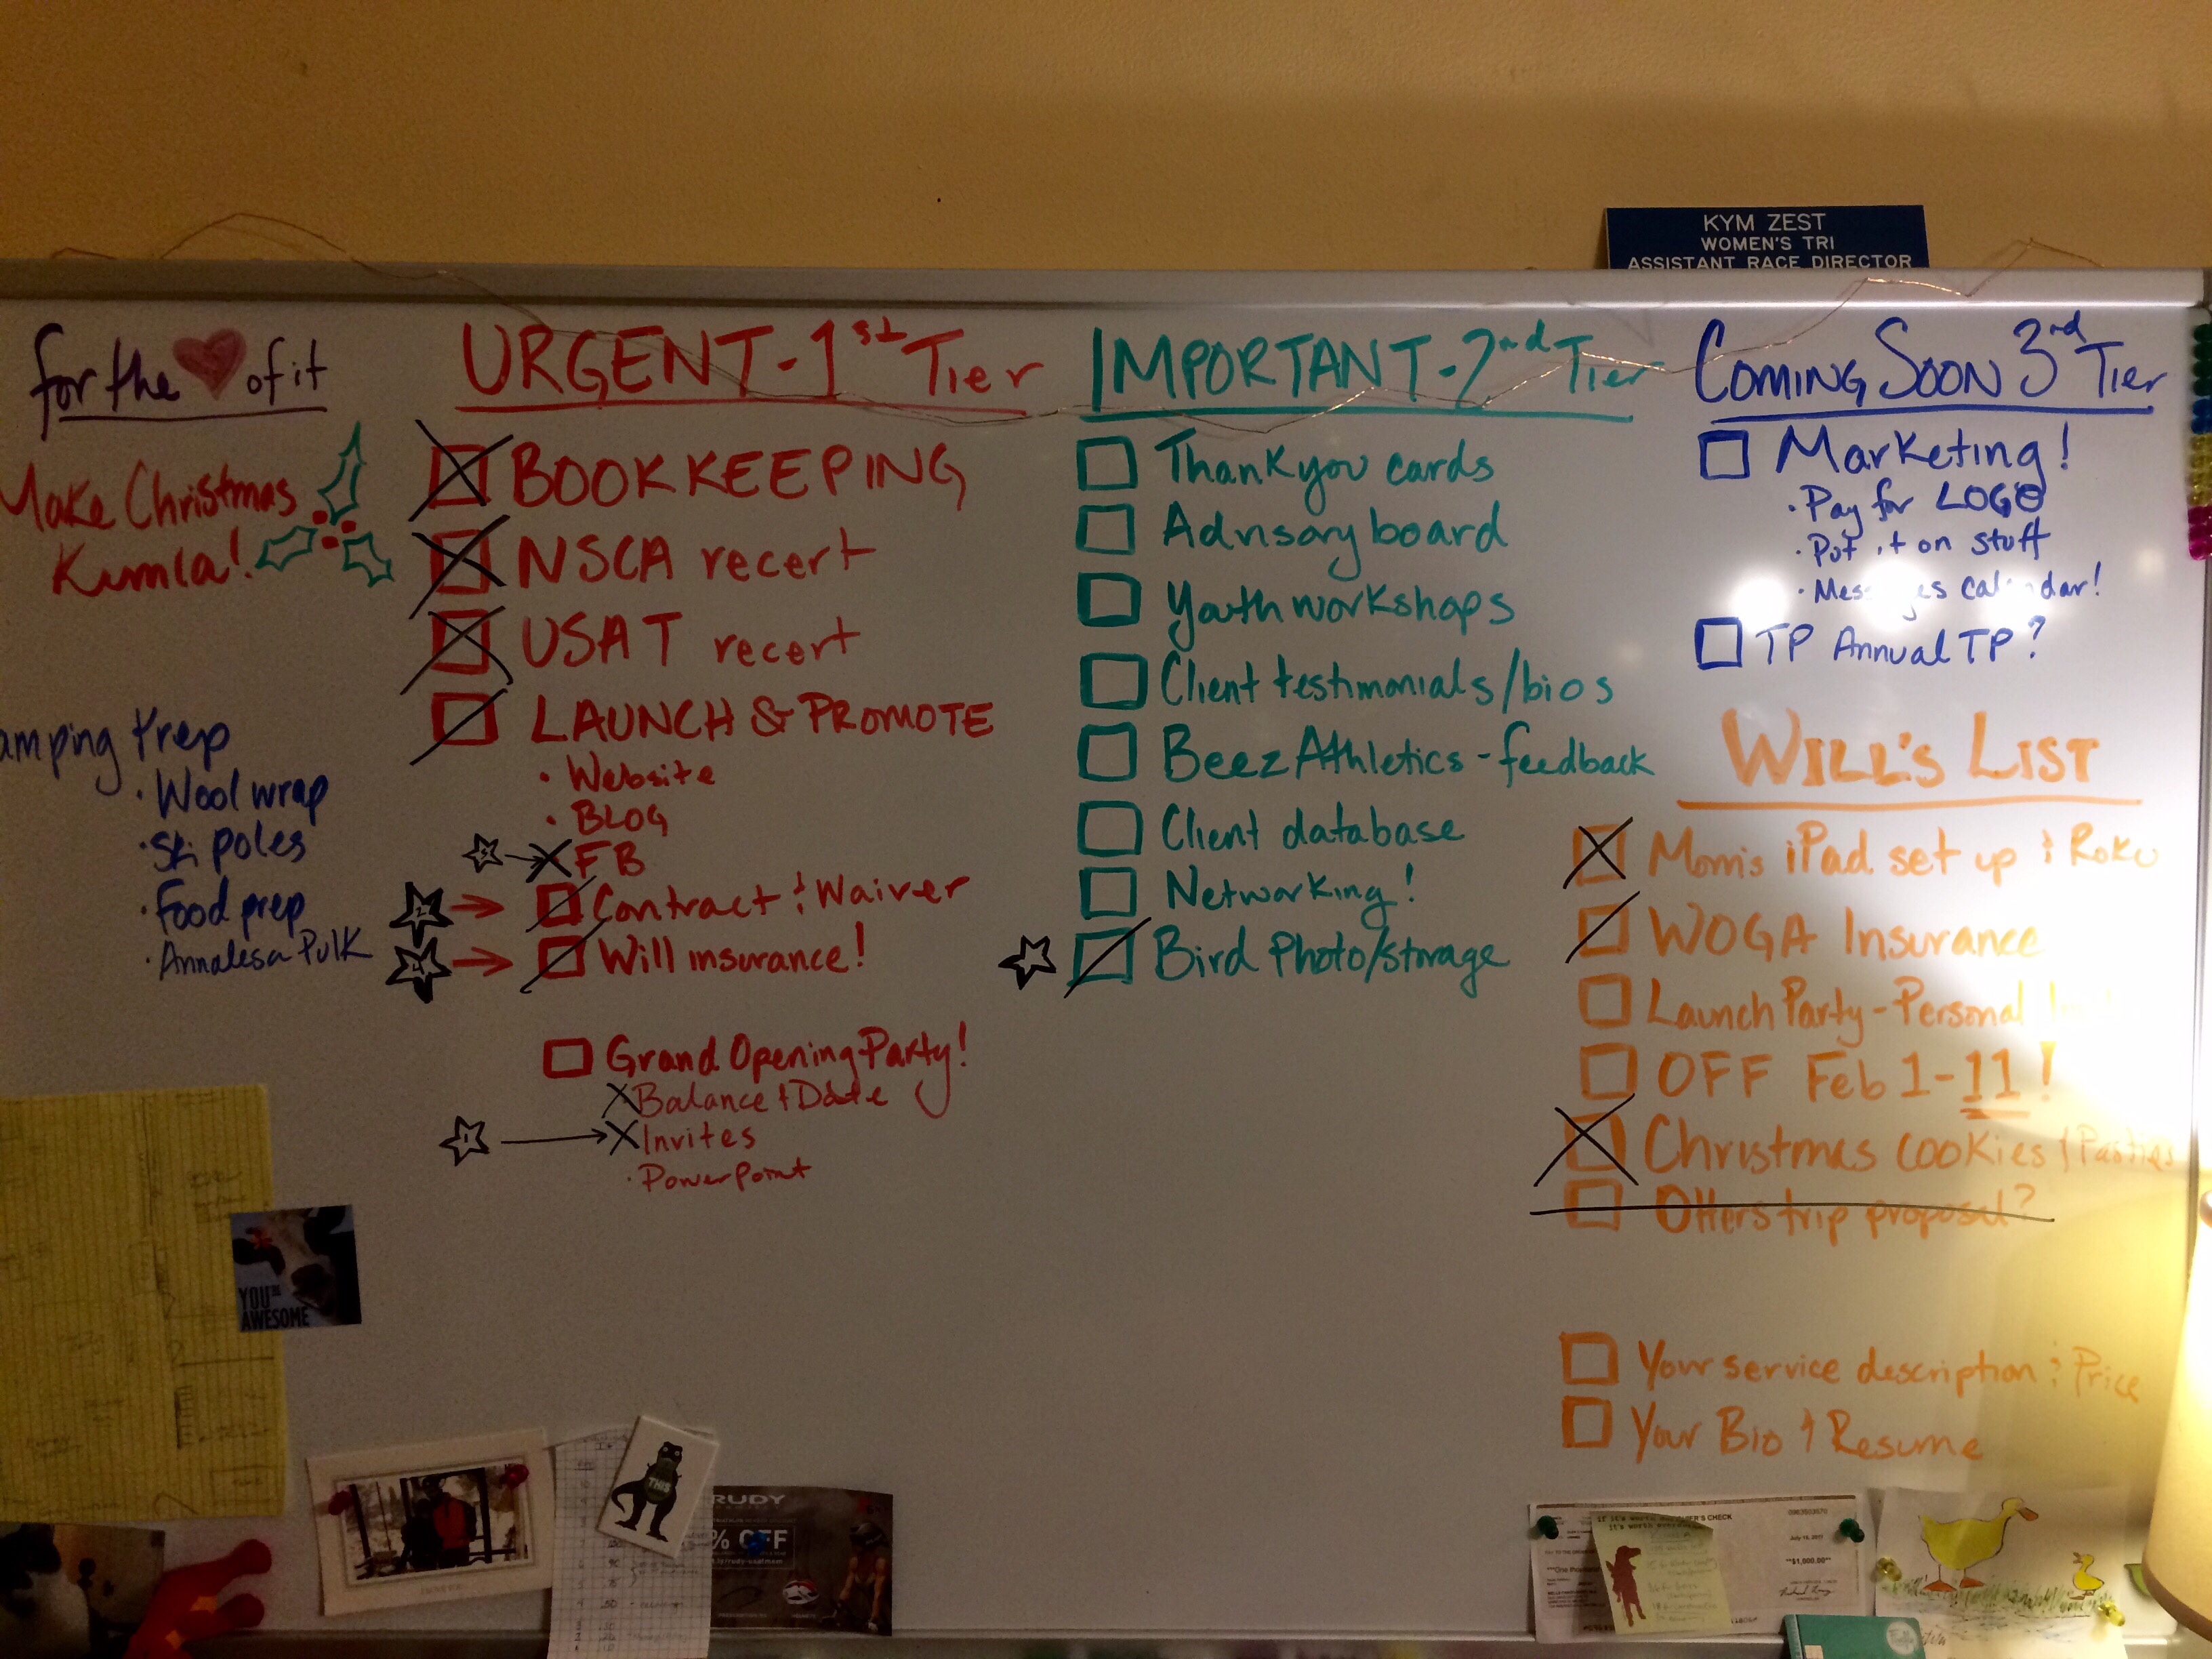 KYM ZEST
WOMEN'S TRI
ASSISTANT RACE DIRECTOR
for the of it
Make Christmas
Kumla!
amping Prep
· Wool wrap
· Ski poles
· Food prep
· Annalesa Pulk
URGENT-1st Tier
BOOKKEEPING
NSCA recert
USAT recert
LAUNCH & PROMOTE
· Website
· BLOG
FB
2 → Contract & Waiver
→ Will insurance!
Grand Opening Party!
Balance & Date
1 → Invites
· Powerpoint
IMPORTANT-2nd Tier
Thank you cards
Advisory board
Youth workshops
Client testimonials/bios
Beez Athletics - feedback
Client database
Networking!
Bird Photo/storage
COMING SOON 3rd Tier
Marketing!
· Pay for LOGO
· Put it on stuff
· Messages calendar!
TP Annual TP?
WILL'S LIST
Mom's iPad set up & Roku
WOGA Insurance
Launch Party - Personal
OFF Feb 1-11!
Christmas cookies & Parties
Otters trip proposal?
Your service description & Price
Your Bio & Resume
YOU'RE
AWESOME
THIS
RUDY
% OFF
If it's worth
it's worth
ER'S CHECK
July 15, 2017
**$1,000.00**